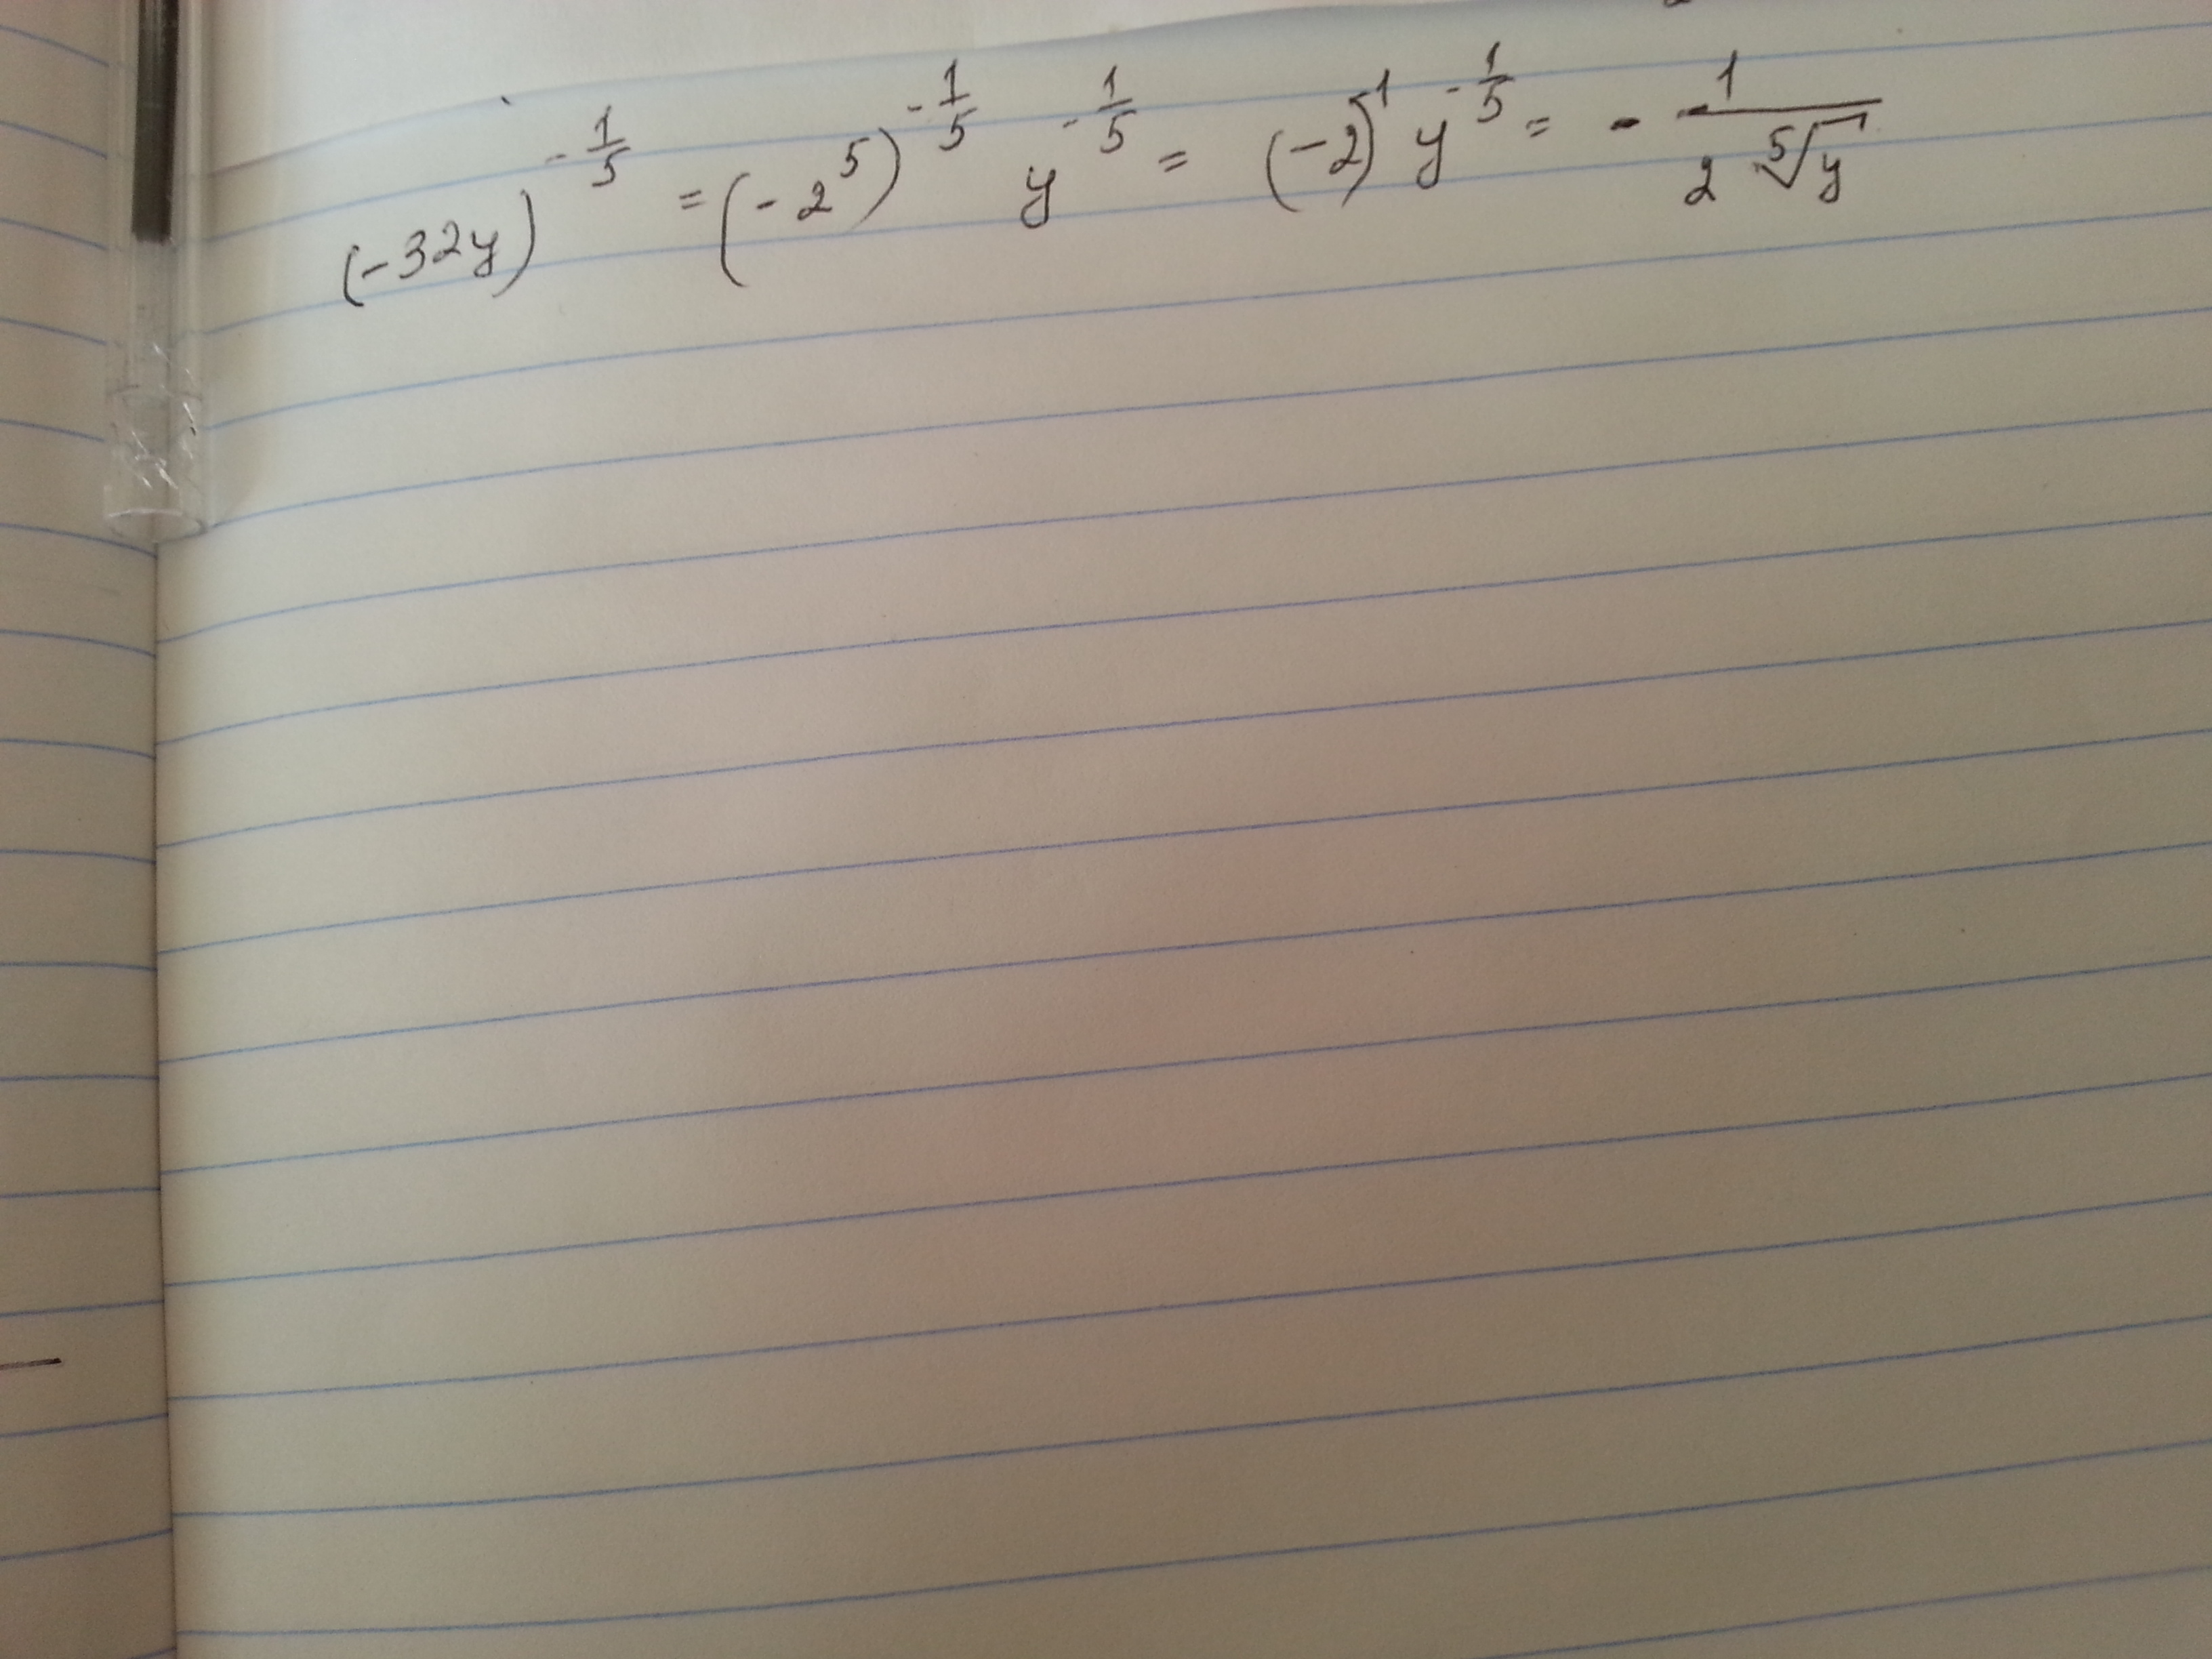 (-32y)^{-\frac{1}{5}} = (-2^5)^{-\frac{1}{5}} y^{-\frac{1}{5}} = (-2)^1 y^{-\frac{1}{5}} = -\frac{1}{2\sqrt[5]{y}}